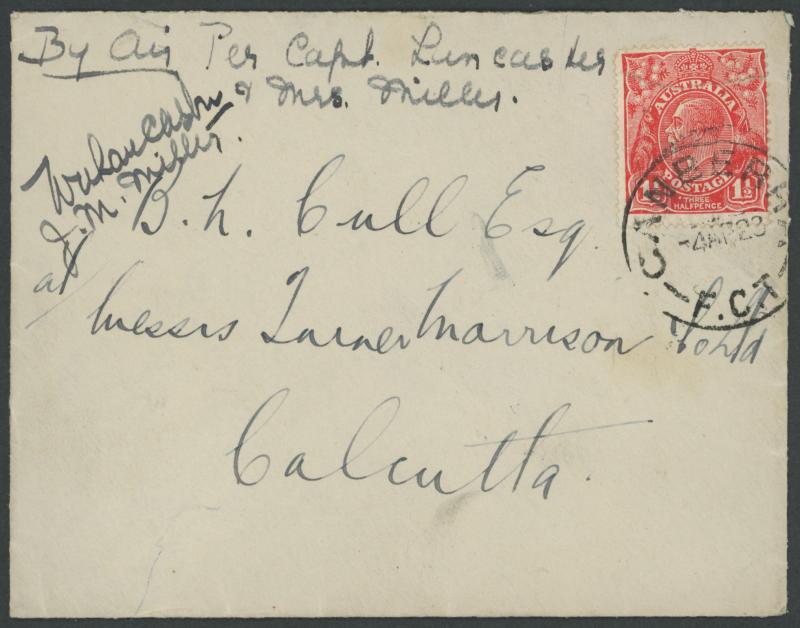 By Air Per Capt. Lancaster
& Mrs. Miller.
W N Lancaster
J. M. Miller.
AUSTRALIA
POSTAGE
1½D
THREE
HALFPENCE
CANBERRA
-4AP28
F.C.T
D. L. Cull Esq.
at Messrs Turner Morrison Co Ltd
Calcutta.